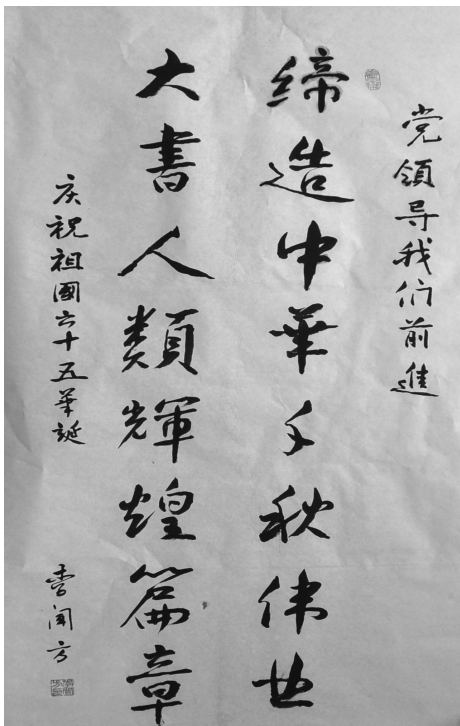 党領导我们前進
缔造中華千秋伟业
大書人類輝煌篇章
庆祝祖國六十五華誕
闻方